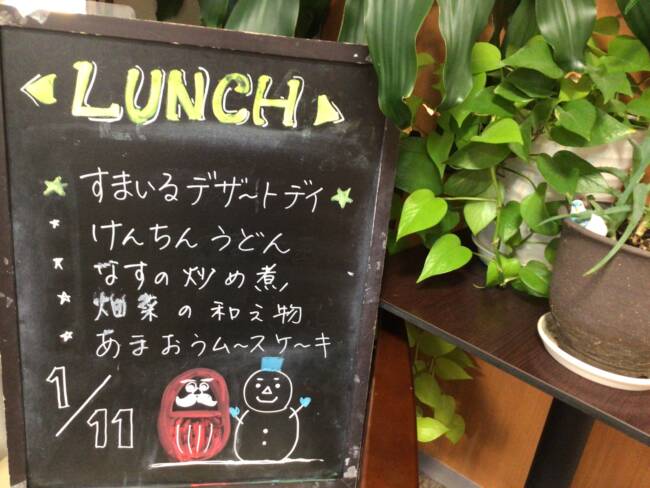 LUNCH
すまいるデザートデイ
けんちんうどん
なすの炒め煮
畑菜の和え物
あまおうムースケーキ
1/11